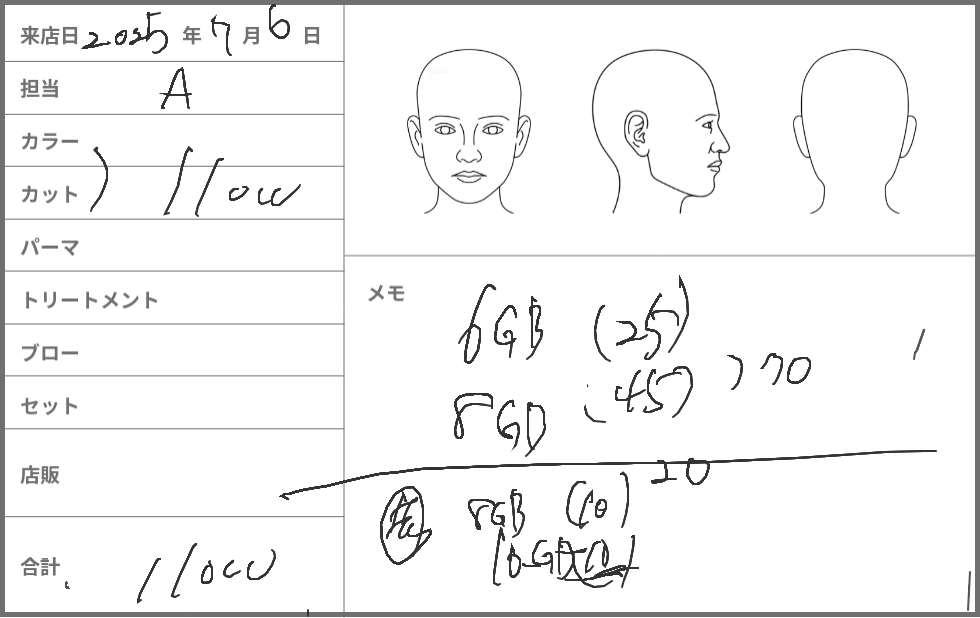 来店日 2025 年 7 月 6 日
担当 A
カラー
カット ) 11000
パーマ
トリートメント
ブロー
セット
店販
合計 11000
メモ
6GB (25)
8GB (45) ) 70
20
8GB (10)